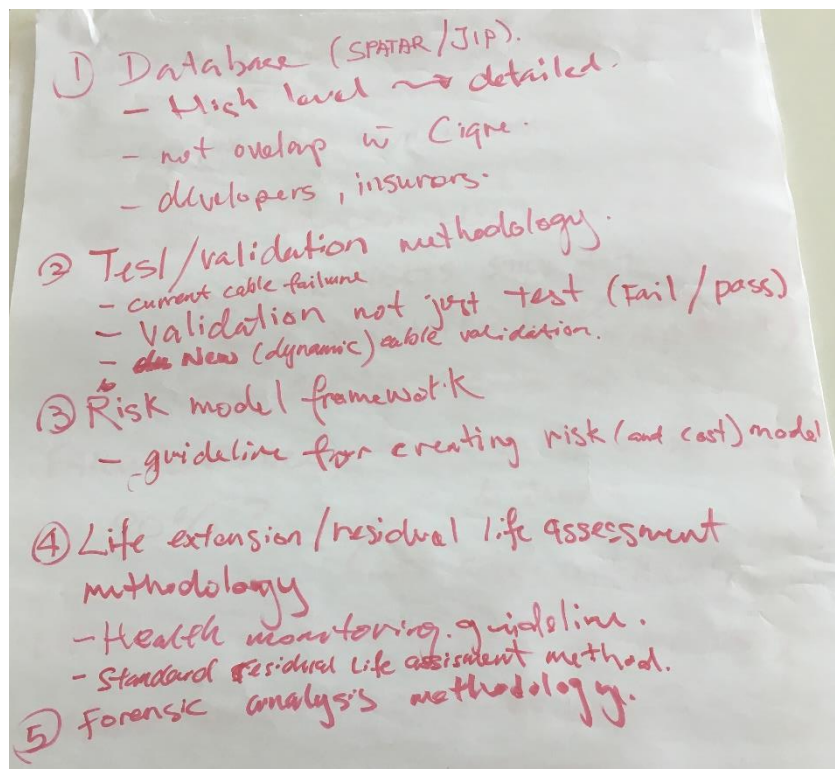 ① Database (SPATAR/JIP).
- High level → detailed.
- not overlap w̄ Cigre.
- developers, insurors.
② Test/validation methodology.
- current cable failure
- Validation not just test (Fail/pass)
- New (dynamic) cable validation.
③ Risk model framework
- guideline for creating risk (and cost) model
④ Life extension/residual life assessment
methodology
- Health monitoring guideline.
- Standard residual Life assisment method.
⑤ Forensic analysis methodology.